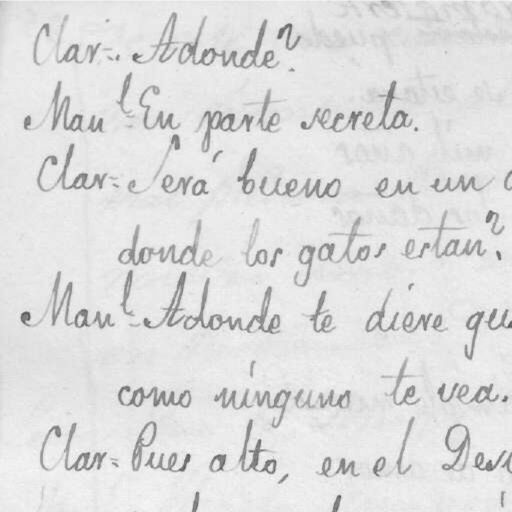 Clar=. Adonde?
Man^l= En parte secreta.
Clar= Será bueno en un
donde los gatos estan?
Man^l= Adonde te diere
como ninguno te vea.
Clar= Pues alto, en el